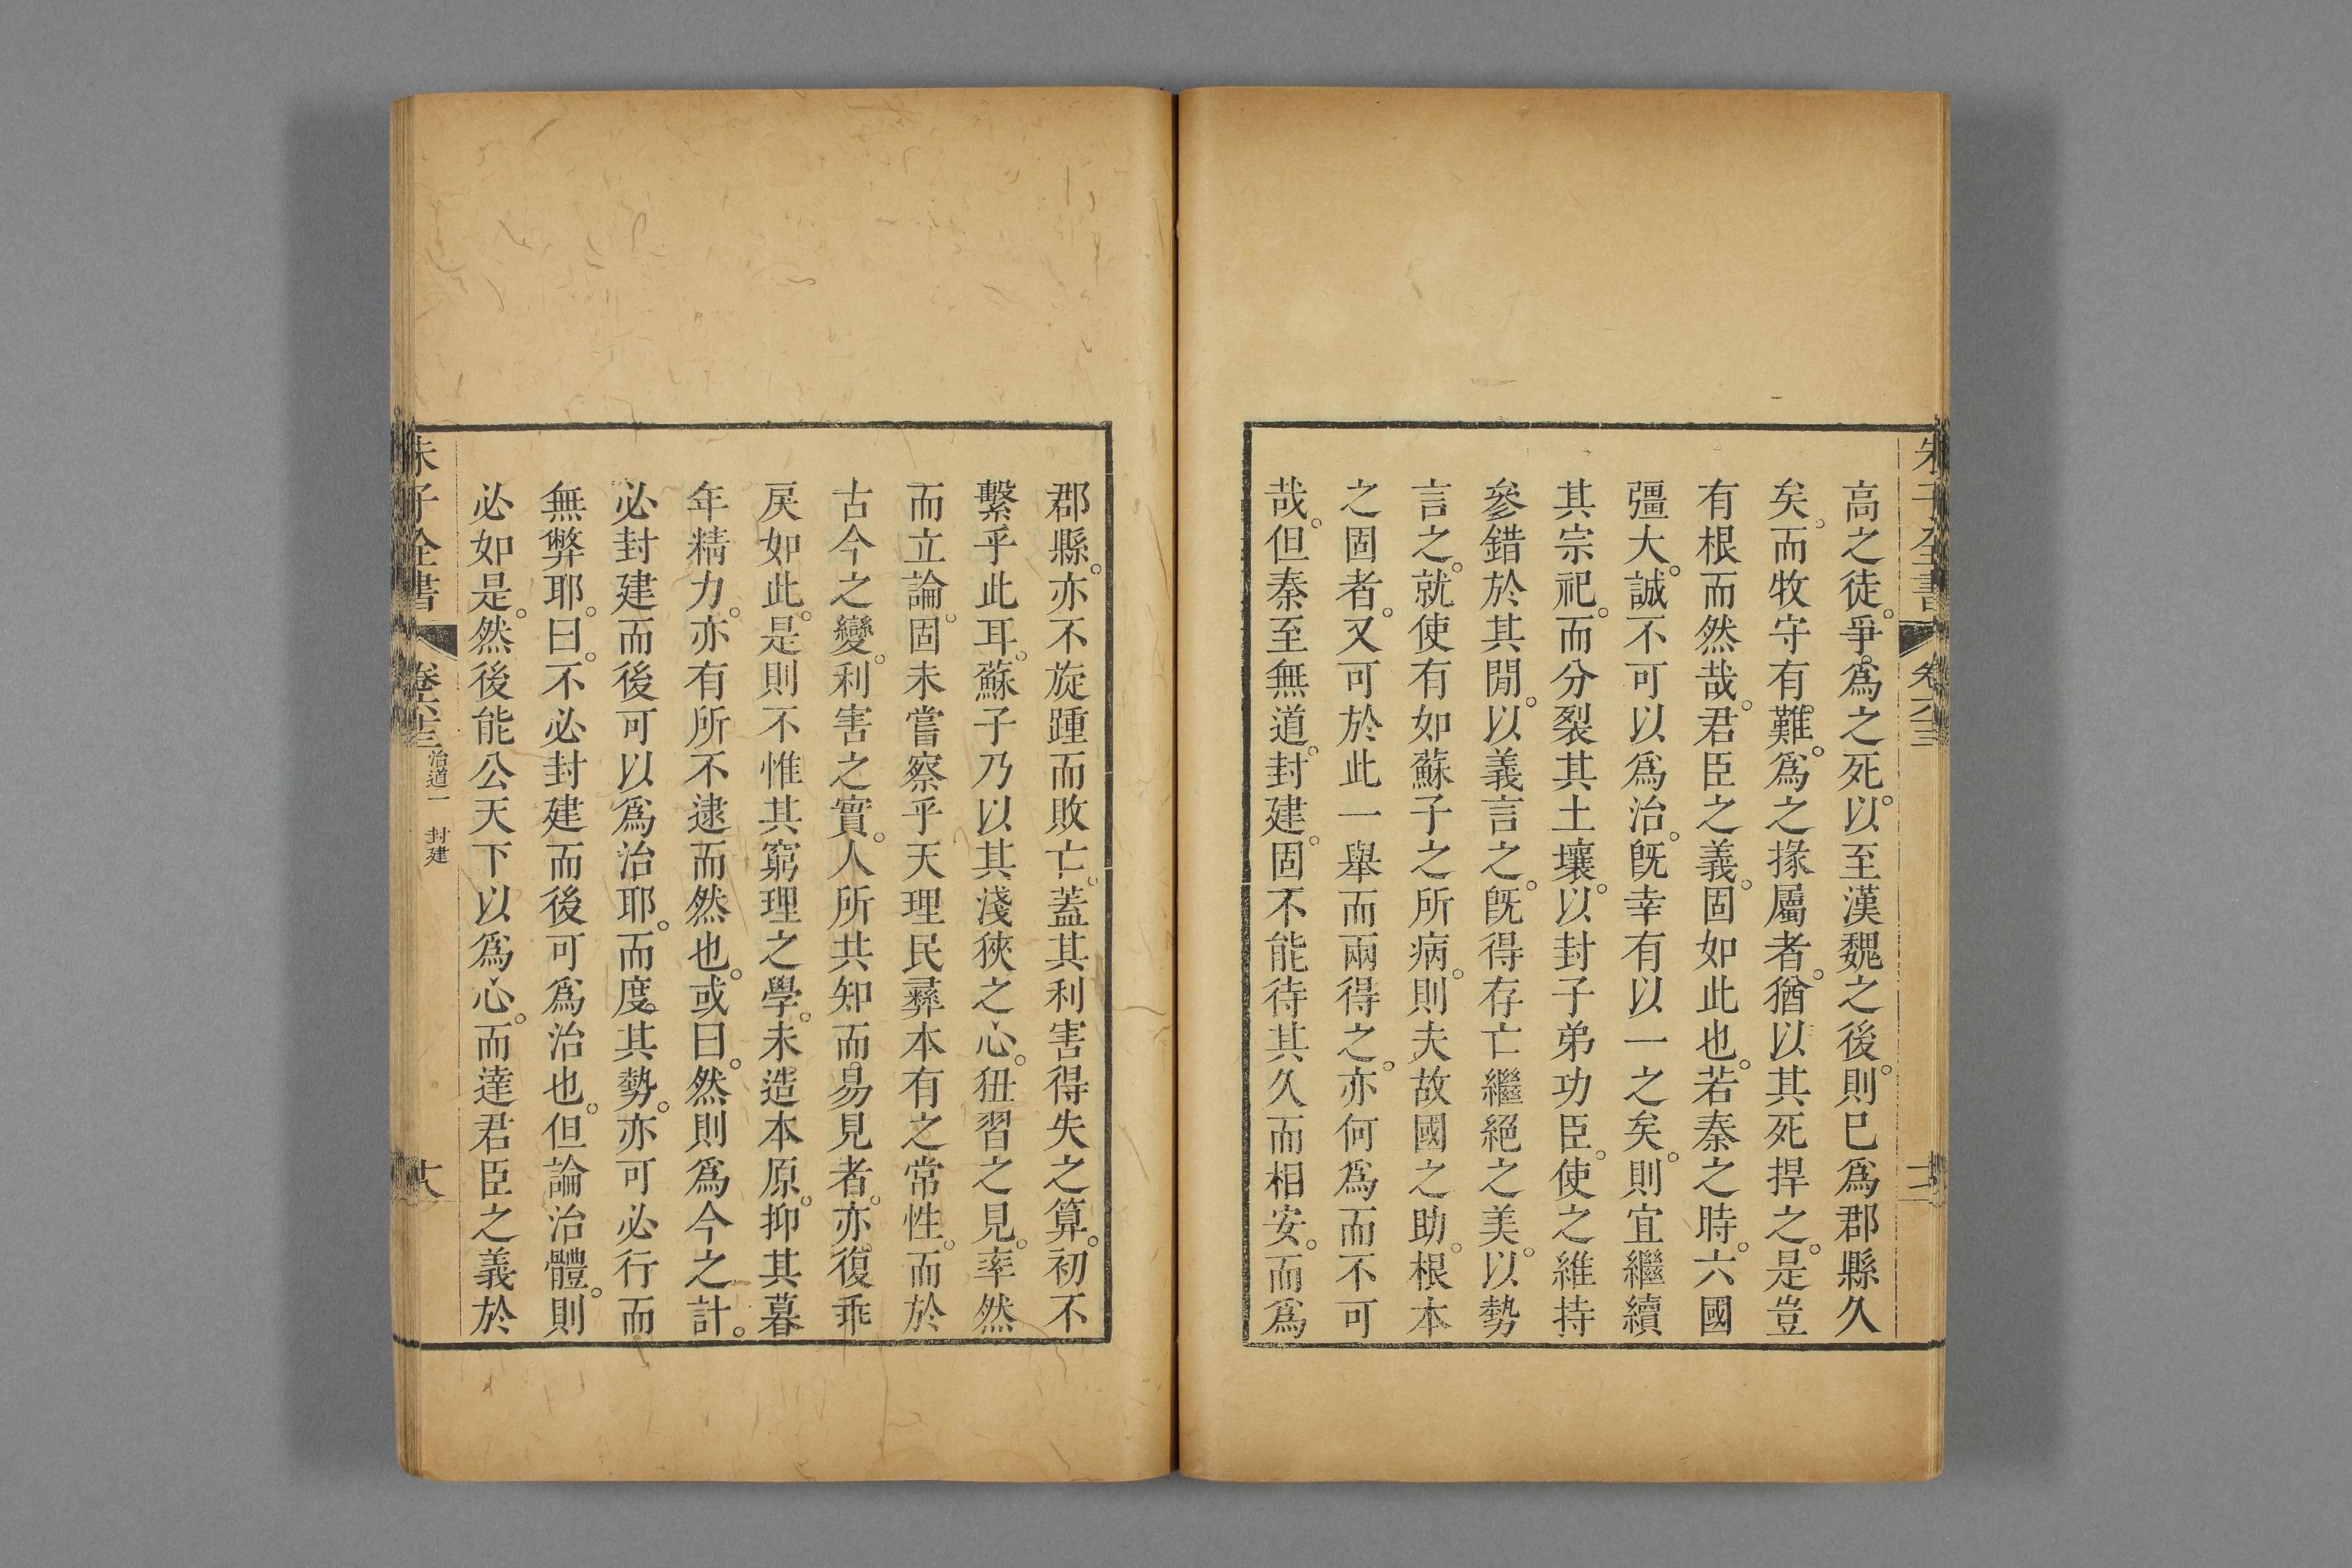 高之徒。爭爲之死。以至漢魏之後。則已爲郡縣久
矣。而牧守有難。爲之掾屬者。猶以其死捍之。是豈
有根而然哉。君臣之義。固如此也。若秦之時。六國
彊大。誠不可以爲治。旣幸有以一之矣。則宜繼續
其宗祀。而分裂其土壤。以封子弟功臣。使之維持
參錯於其閒。以義言之。旣得存亡繼絕之美。以勢
言之。就使有如蘇子之所病。則夫故國之助。根本
之固者。又可於此一舉而兩得之。亦何爲而不可
哉。但秦至無道。封建。固不能待其久而相安。而爲
朱子全書 卷六十三
郡縣。亦不旋踵而敗亡。蓋其利害得失之算。初不
繫乎此耳。蘇子乃以其淺狹之心。狃習之見。率然
而立論。固未嘗察乎天理民彞本有之常性。而於
古今之變。利害之實。人所共知而易見者。亦復乖
戾如此。是則不惟其窮理之學。未造本原。抑其暮
年精力。亦有所不逮而然也。或曰。然則爲今之計。
必封建而後可以爲治耶。而度其勢。亦可必行而
無弊耶。曰。不必封建而後可爲治也。但論治體。則
必如是。然後能公天下以爲心。而達君臣之義於
朱子全書 卷六十三 治道一 封建 十八